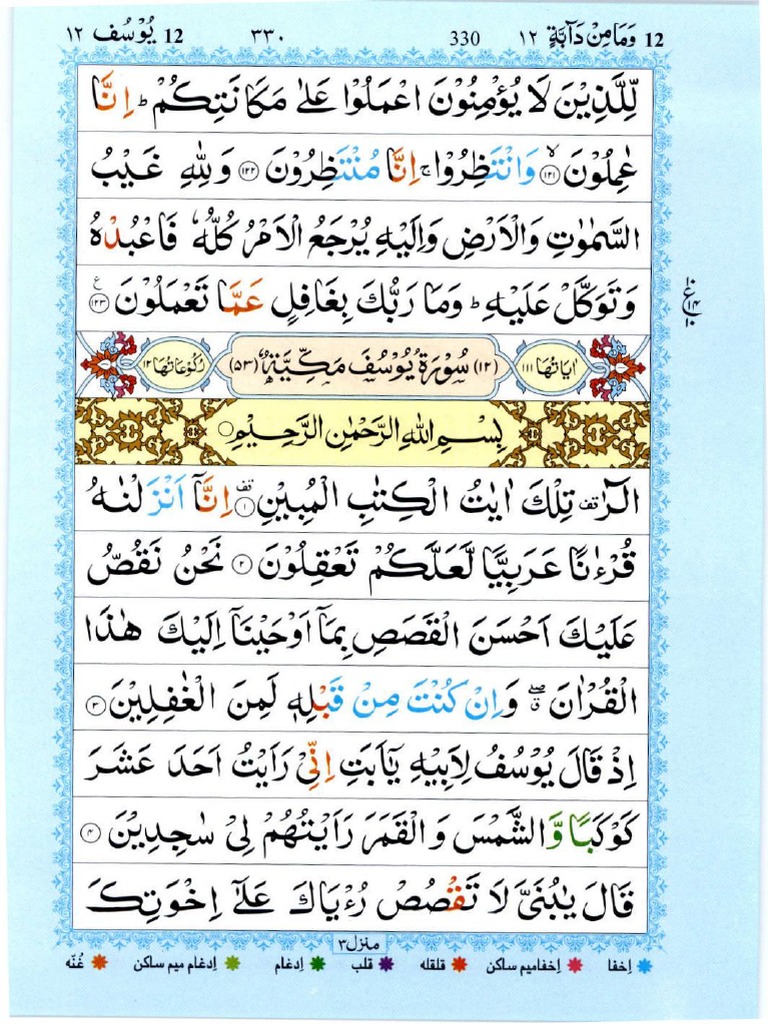 12 وَمَا مِنْ دَآبَّةٍ ١٢ 330 ٣٣٠ 12 يُوْسُف ١٢
لِّلَّذِيْنَ لَا يُؤْمِنُوْنَ اعْمَلُوْا عَلٰى مَكَانَتِكُمْ ؕ اِنَّا
عٰمِلُوْنَ ۙ﴿۱۲۱﴾ وَانْتَظِرُوْا ۚ اِنَّا مُنْتَظِرُوْنَ ﴿۱۲۲﴾ وَلِلّٰهِ غَيْبُ
السَّمٰوٰتِ وَالْاَرْضِ وَاِلَيْهِ يُرْجَعُ الْاَمْرُ كُلُّهٗ فَاعْبُدْهُ
وَتَوَكَّلْ عَلَيْهِ ؕ وَمَا رَبُّكَ بِغَافِلٍ عَمَّا تَعْمَلُوْنَ ﴿۱۲۳﴾
ع
اٰيَاتُهَا ١١١ (١٢) سُوْرَةُ يُوْسُفَ مَكِّيَّةٌ (٥٣) رُكُوْعَاتُهَا ١٢
بِسْمِ اللّٰهِ الرَّحْمٰنِ الرَّحِيْمِ
الٓرٰ ۟ تِلْكَ اٰيٰتُ الْكِتٰبِ الْمُبِيْنِ ۟﴿۱﴾ اِنَّاۤ اَنْزَلْنٰهُ
قُرْءٰنًا عَرَبِيًّا لَّعَلَّكُمْ تَعْقِلُوْنَ ﴿۲﴾ نَحْنُ نَقُصُّ
عَلَيْكَ اَحْسَنَ الْقَصَصِ بِمَاۤ اَوْحَيْنَاۤ اِلَيْكَ هٰذَا
الْقُرْاٰنَ ۖۗ وَاِنْ كُنْتَ مِنْ قَبْلِهٖ لَمِنَ الْغٰفِلِيْنَ ﴿۳﴾
اِذْ قَالَ يُوْسُفُ لِاَبِيْهِ يٰۤاَبَتِ اِنِّيْ رَاَيْتُ اَحَدَ عَشَرَ
كَوْكَبًا وَّالشَّمْسَ وَالْقَمَرَ رَاَيْتُهُمْ لِيْ سٰجِدِيْنَ ﴿۴﴾
قَالَ يٰبُنَيَّ لَا تَقْصُصْ رُءْيَاكَ عَلٰۤى اِخْوَتِكَ
منزل ٣
اِخفا اِخفامیم ساکن قلقله قلب اِدغام اِدغام میم ساکن غُنّه